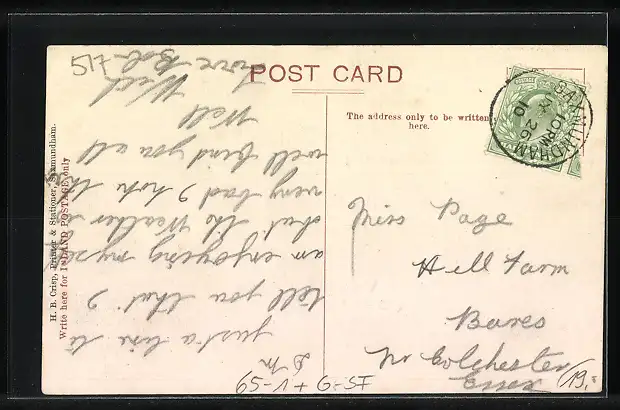 517
POST CARD
The address only to be written
here.
SAXMUNDHAM
10 PM
26
10
Miss Page
Hill Farm
Bores
Nr Colchester
Essex
19,-
H. B. Crisp, Printer & Stationer, Saxmundham.
Write here for INLAND POSTAGE only
D M
just a line to
tell you that I
am enjoying my
but the Weather is
very bad I hope this
will find you all
Well
With
Love Bob